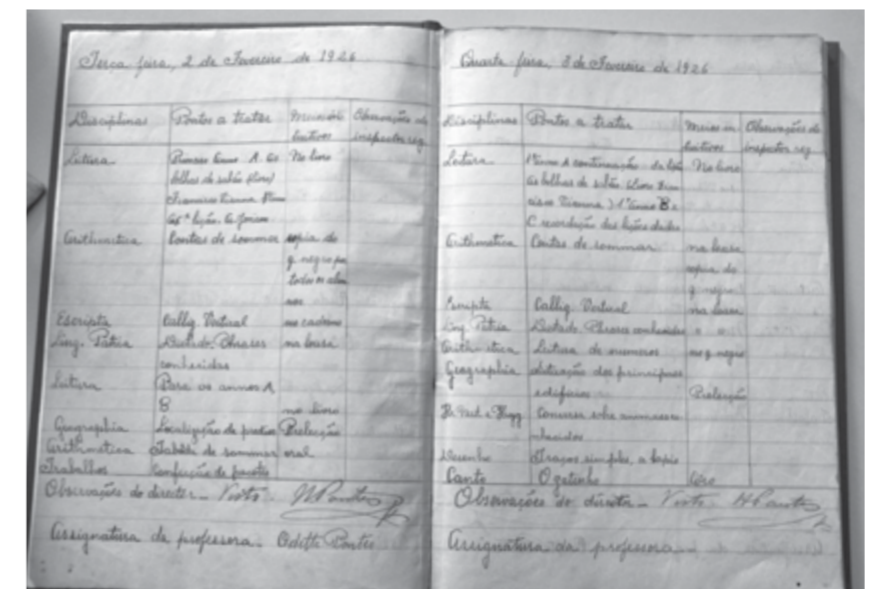 Terça feira, 2 de Fevereiro de 1926
Disciplinas Pontos a tratar Observações do
inspector reg
Leitura A. As No livro
bolhas de sabão (livro)
Francisco Vianna
lição.
Arithmetica Contas de sommar copia do
q. negro
todos os alum
nos
Escripta Callig. Vertical no caderno
Ling. Patria Dictado. Phrases na lousa
conhecidas
Leitura Para os annos A
B no livro
Geographia Localização de Prelecção
Arithmetica Taboada de sommar oral
Trabalhos Confecção de
Observações do director - Visto.
Assignatura da professora. Odette Pontes
Quarta feira, 3 de Fevereiro de 1926
Disciplinas Pontos a tratar Meios in
tuitivos Observações do
inspector reg
Leitura 1º anno A continuação da No livro
As bolhas de sabão (Livro Fran
cisco Vianna) 1º anno B e
C recordação das lições dadas
Arithmetica Contas de sommar na lousa
copia do
q. negro
Escripta Callig. Vertical na lousa
Ling. Patria Dictado. Phrases conhecidas
Arithmetica Leitura de numeros no q. negro
Geographia situação dos principaes
edificios Prelecção
Conversa sobre animaes co
nhecidos
Desenho Traços simples, a lapis
Canto O gatinho Côro
Observações do director - Visto
Assignatura da professora -